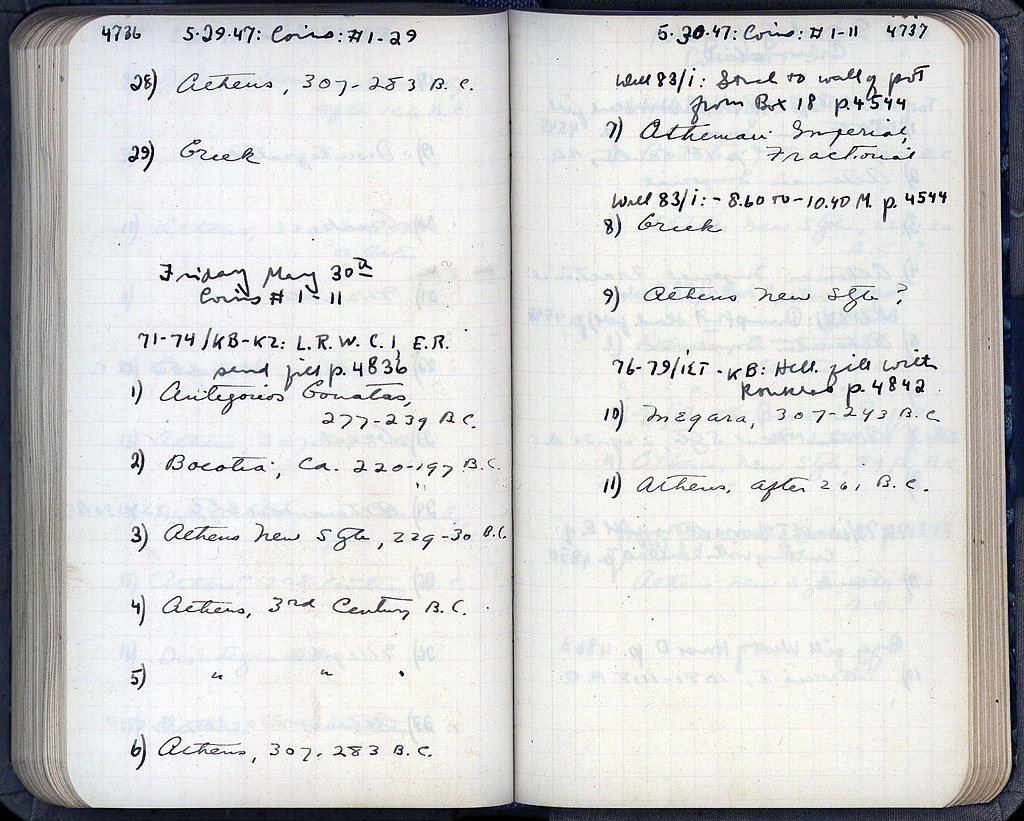 4736 5.29.47: Coins: #1-29
28) Athens, 307-283 B.C.
29) Greek
Friday May 30th
Coins # 1-11
71-74/KB-KZ: L.R.W.C.1, E.R.
sand fill p. 4836
1) Antigonos Gonatas,
277-239 B.C.
2) Boeotia, ca. 220-197 B.C.
3) Athens New Style, 229-30 B.C.
4) Athens, 3rd Century B.C.
5) " " "
6) Athens, 307-283 B.C.
5.30.47: Coins: #1-11 4737
Well 83/i: Stuck to wall of pot
from Box 18 p. 4544
7) Athenian Imperial,
Fractional
Well 83/i: -8.60 to -10.40 M. p. 4544
8) Greek
9) Athens New Style?
76-79/ -KB: Hell. fill with
p. 4842
10) Megara, 307-243 B.C.
11) Athens, after 261 B.C.